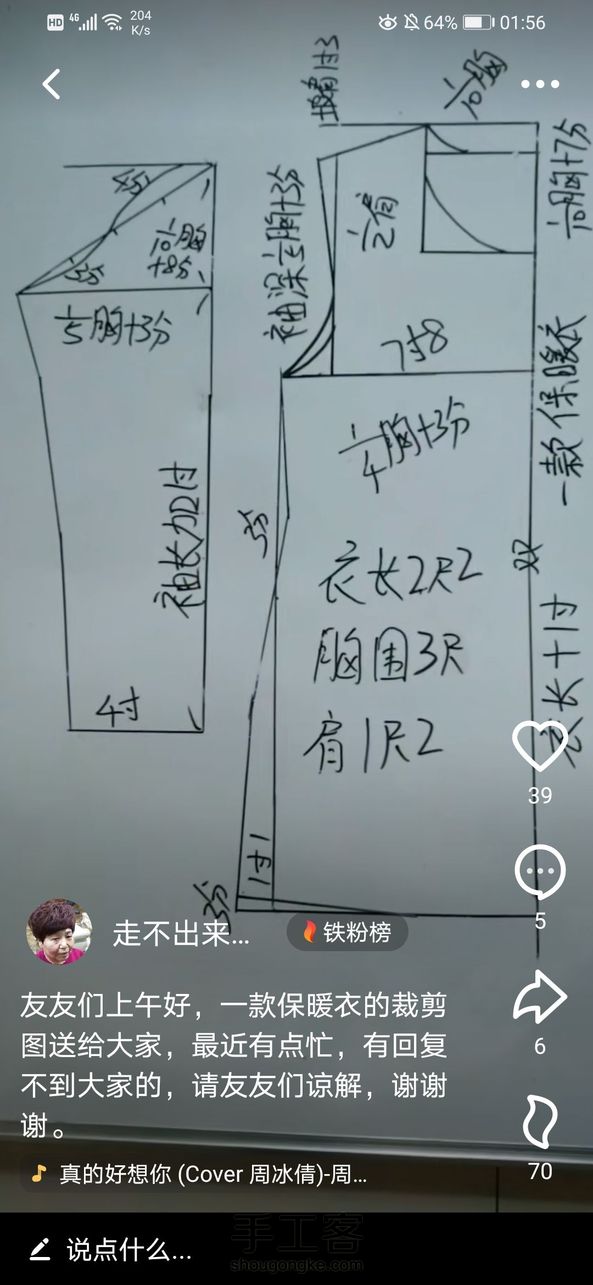 HD 4G 204 K/s 64% 01:56
1/10胸
1/10胸+7分
4分
1/10胸
+8分
5分
1/5胸+3分
袖长加2寸
4寸
1/2肩
7寸8
1/4胸+3分
3分
一款保暖衣
双
衣长2尺2
胸围3尺
肩1尺2
1寸1
3分
39
5
6
70
走不出来...
铁粉榜
友友们上午好，一款保暖衣的裁剪
图送给大家，最近有点忙，有回复
不到大家的，请友友们谅解，谢谢
谢。
真的好想你 (Cover 周冰倩)-周...
说点什么...
手工客
shougongke.com